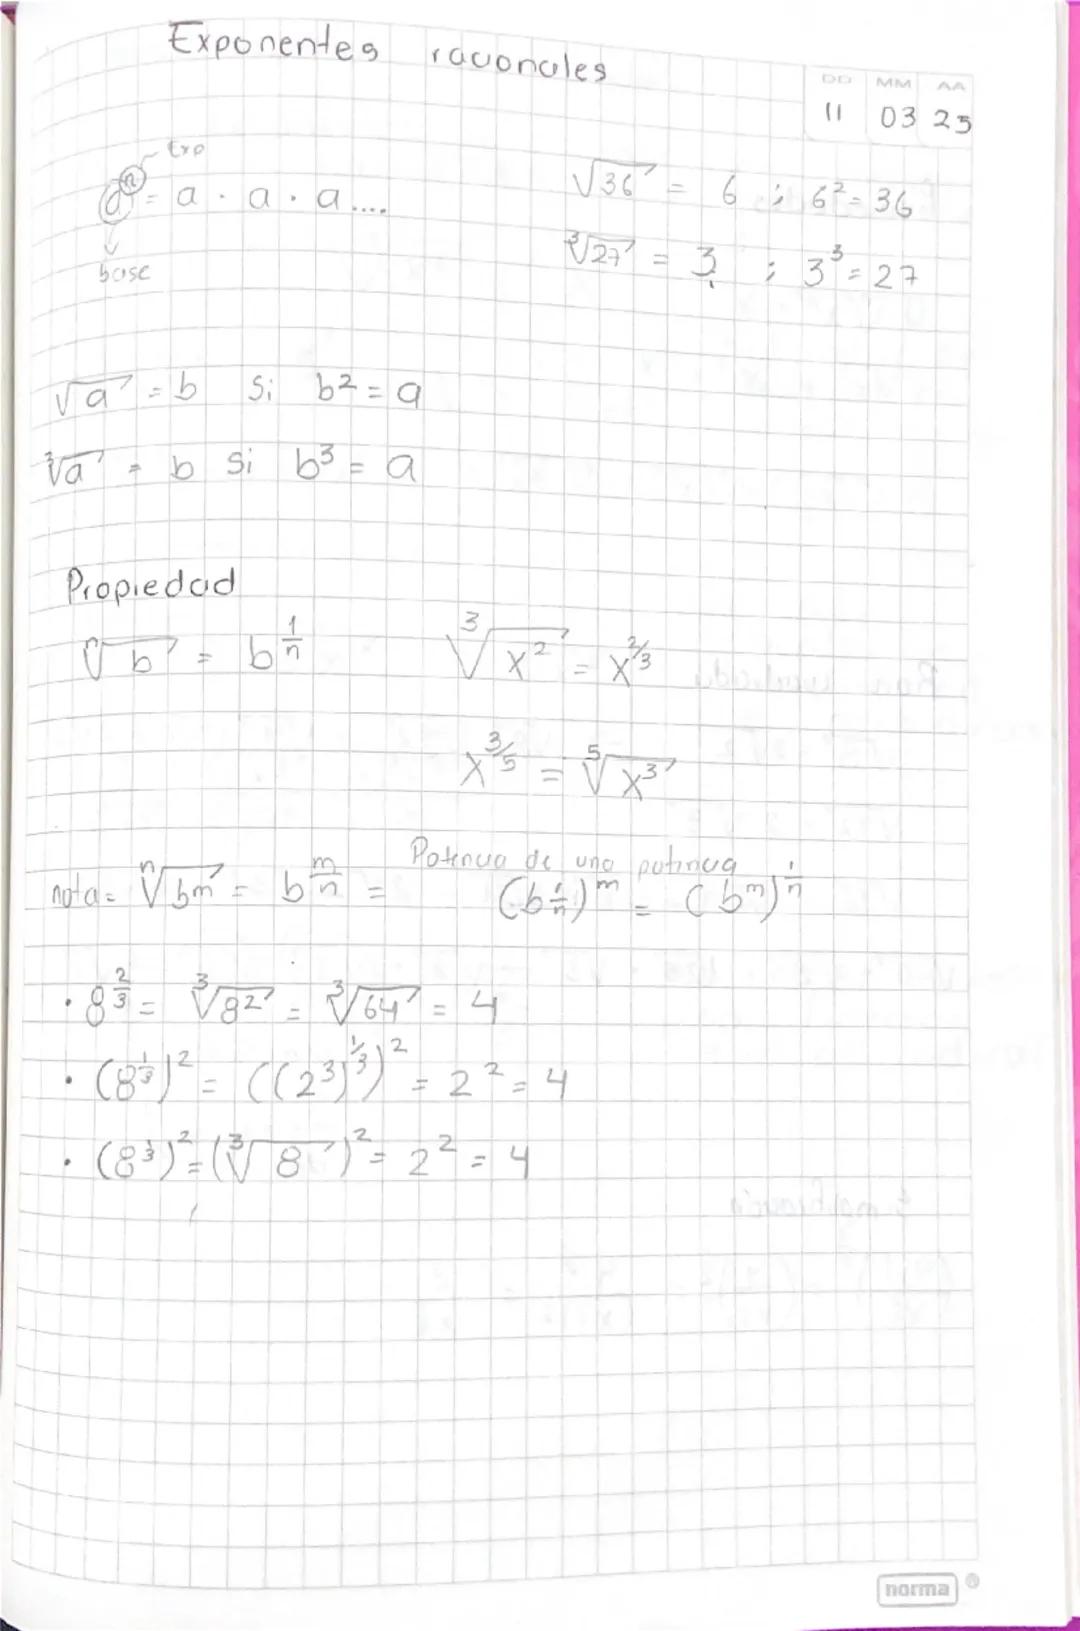 Exponentes racionales
DD MM AA
11 03 25
Exp
aⁿ = a · a · a ....
base
√36 = 6 ; 6² = 36
∛27 = 3 ; 3³ = 27
√a = b Si b² = a
∛a = b Si b³ = a
Propiedad
ⁿ√b = b^(1/n)
∛x² = x^(2/3)
x^(3/5) = ⁵√x³
Potencia de una potencia
nota = ⁿ√bᵐ = b^(m/n) = (b^(1/n))^m = (b^m)^(1/n)
· 8^(2/3) = ∛8² = ∛64 = 4
· (8^(1/3))² = ((2³)^(1/3))² = 2² = 4
· (8^(1/3))² = (∛8)² = 2² = 4
norma